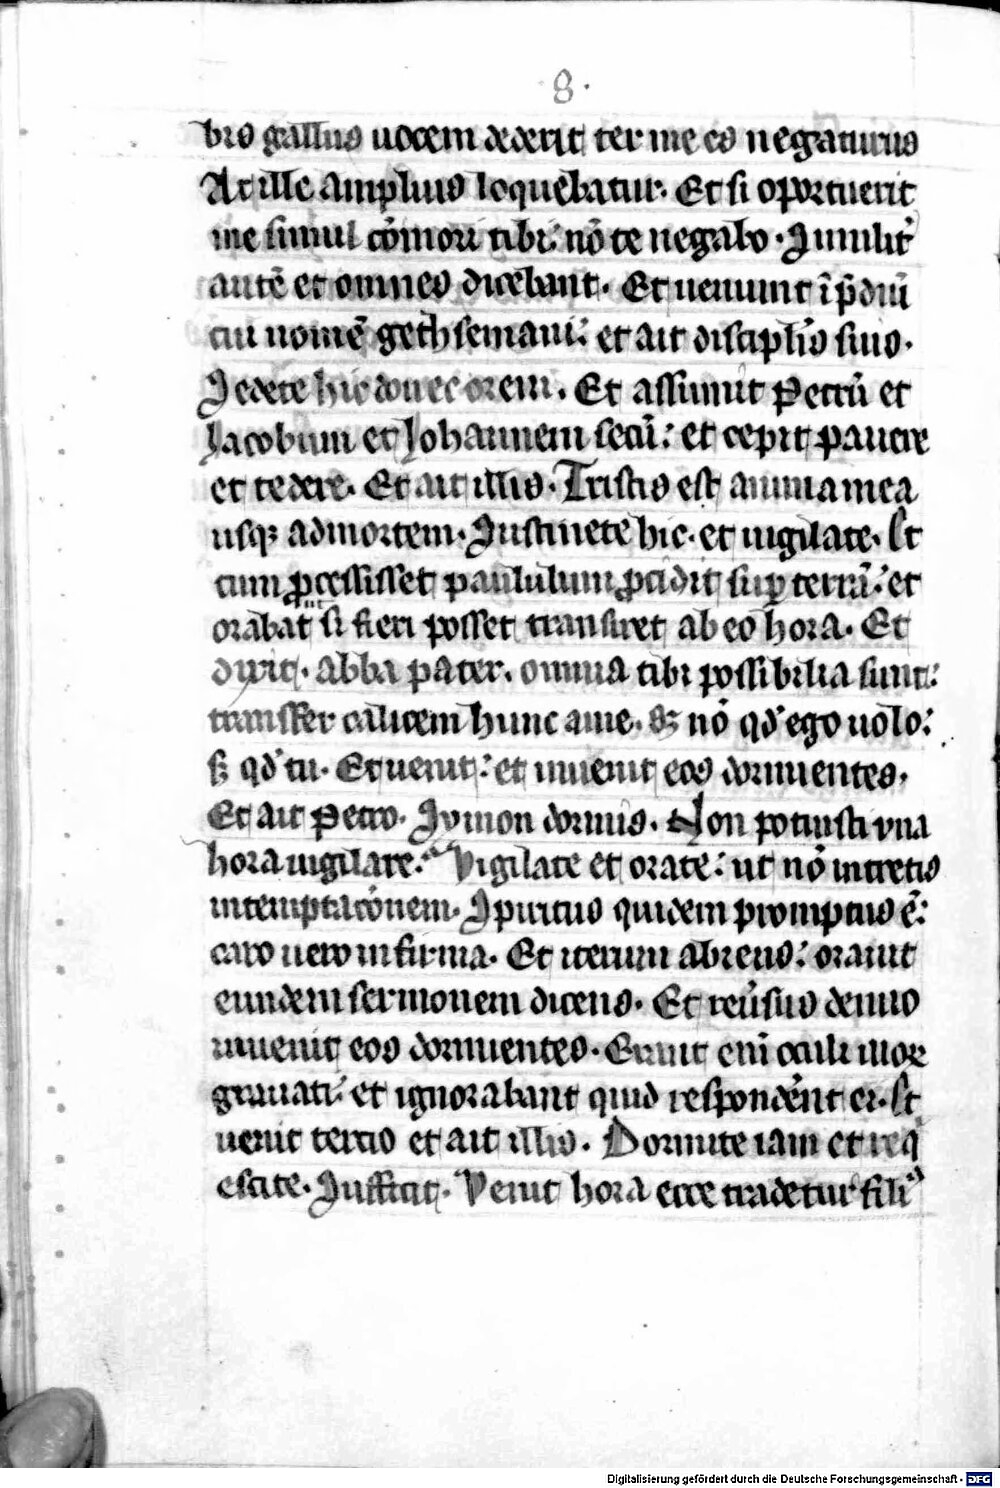 8.
bis gallus uocem dederit ter me es negaturus
At ille amplius loquebatur. Et si oportuerit
me simul cōmori tibi: nō te negabo. Similit̄
autē et omnes dicebant. Et ueniunt ī p̄diū
cui nomē gethsemani: et ait discipl̄is suis.
Sedete hic donec orem. Et assumit Petrū et
Jacobum et Johannem secū: et cepit pauere
et tedere. Et ait illis. Tristis est anima mea
usqꝫ ad mortem. Sustinete hic. et uigilate. Et
cum ꝓcessisset paululum ꝓcidit suꝑ terrā: et
orabat ut si fieri posset transiret ab eo hora. Et
dixit. abba pater. omnia tibi possibilia sunt:
transfer calicem hunc a me. sꝫ nō qd' ego uolo:
sꝫ qd' tu. Et uenit: et inuenit eos dormientes.
Et ait Petro. Symon dormis. Non potuisti vna
hora uigilare. Vigilate et orate: ut nō intretis
in temptacōnem. Spiritus quidem promptus ē:
caro uero infirma. Et iterum abiens: orauit
eundem sermonem dicens. Et reūsus denuo
inuenit eos dormientes. Erant enī oculi illoꝝ
grauati: et ignorabant quid respondēnt ei. Et
uenit tercio et ait illis. Dormite iam et req'
escite. Sufficit. Venit hora ecce tradetur fili⁹
Digitalisierung gefördert durch die Deutsche Forschungsgemeinschaft - DFG